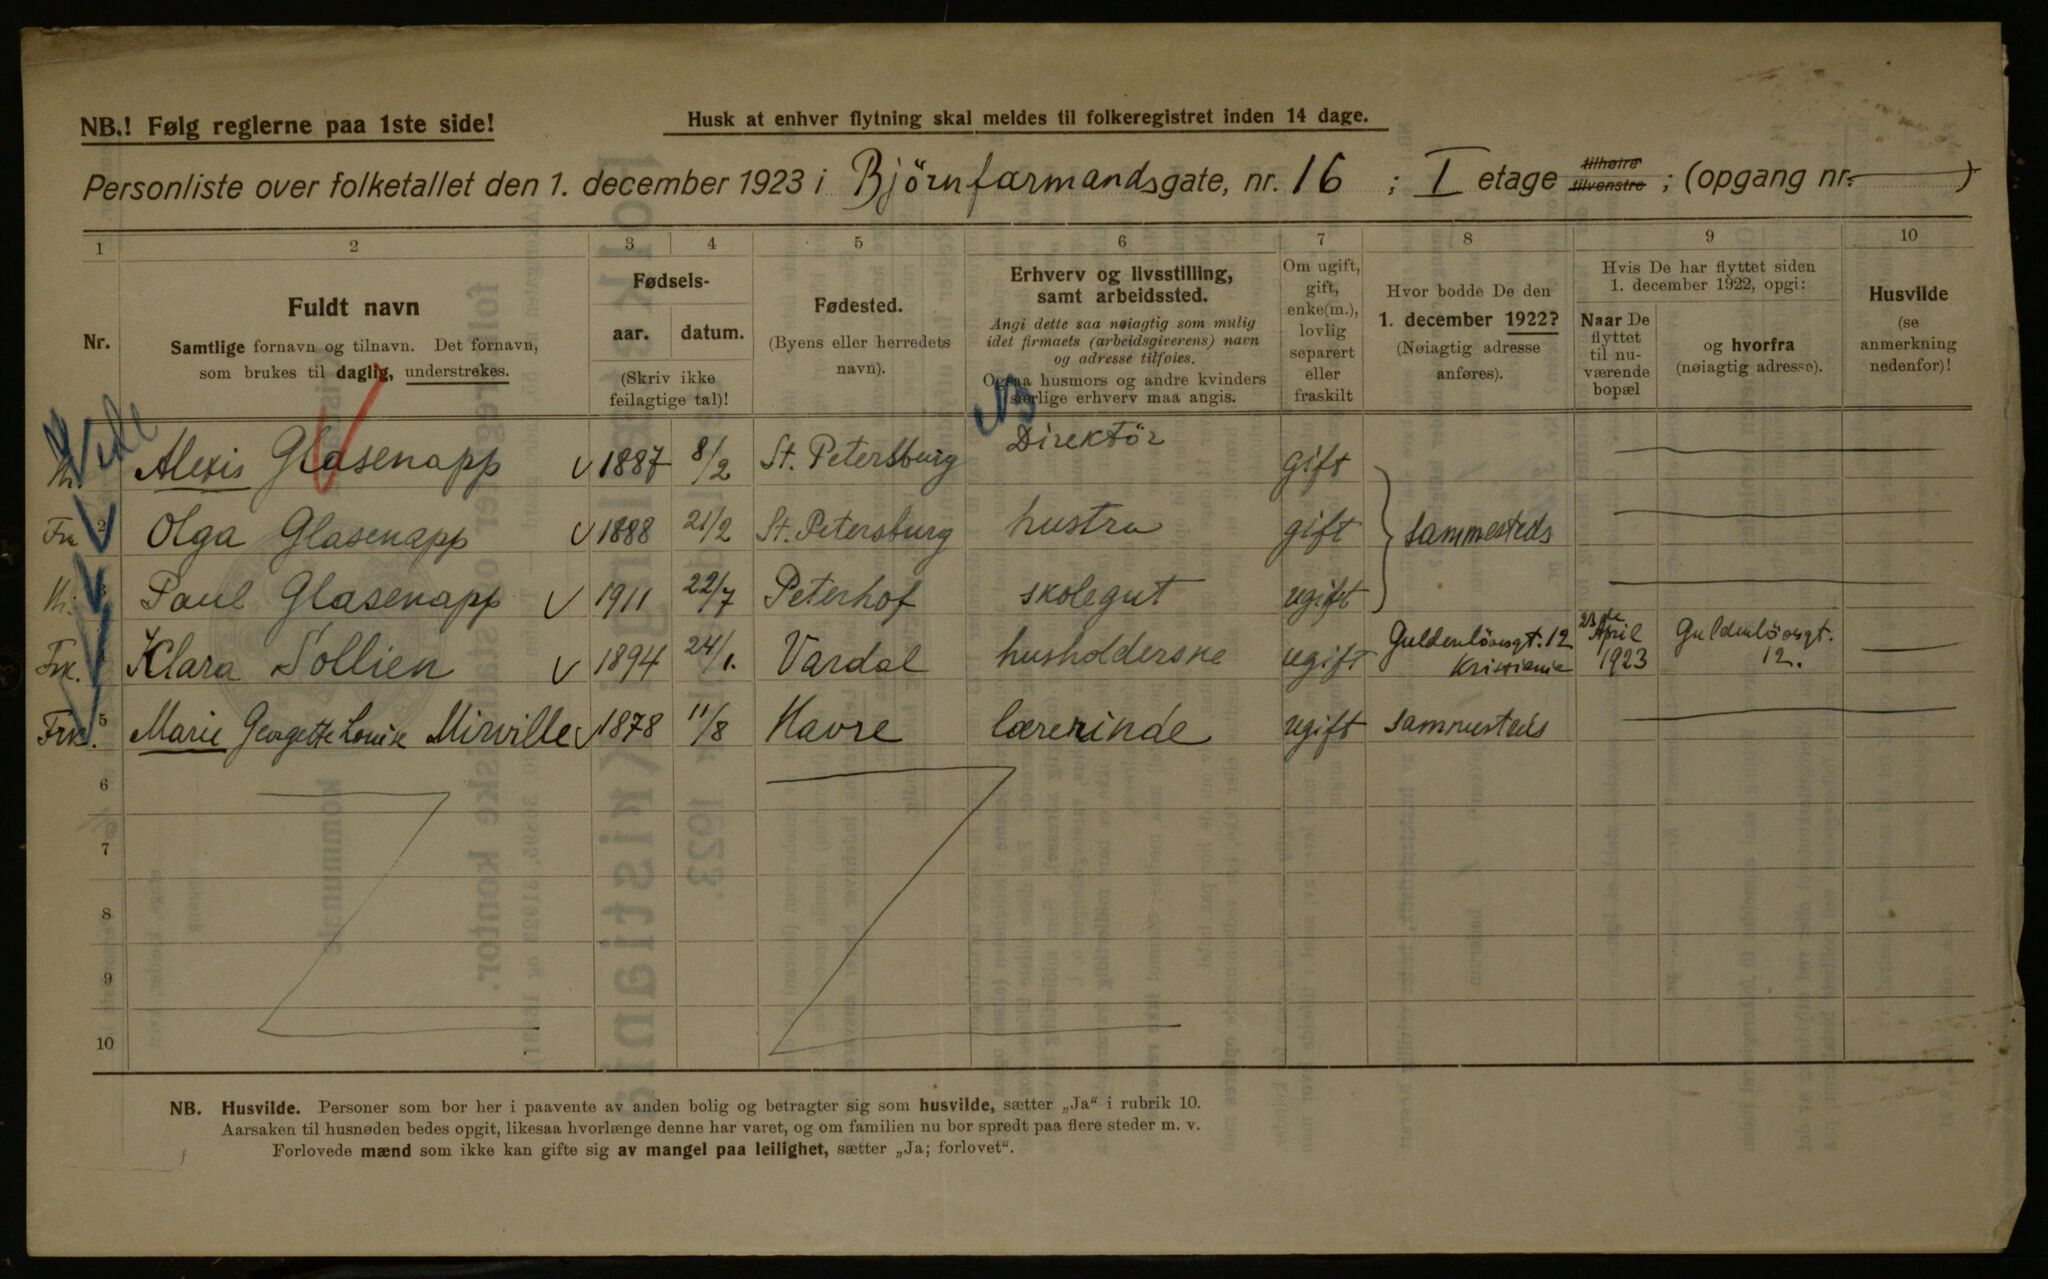 NB.! Følg reglerne paa 1ste side!
Husk at enhver flytning skal meldes til folkeregistret inden 14 dage.
Personliste over folketallet den 1. december 1923 i Bjørnfarmandsgate, nr. 16 ; I etage tilhøire tilvenstre ; (opgang nr. )
1 2 3 4 5 6 7 8 9 10
Nr.
Fuldt navn
Samtlige fornavn og tilnavn. Det fornavn,
som brukes til daglig, understrekes.
Fødsels-
aar. datum.
(Skriv ikke
feilagtige tal)!
Fødested.
(Byens eller herredets
navn).
Erhverv og livsstilling,
samt arbeidssted.
Angi dette saa nøiagtig som mulig
idet firmaets (arbeidsgiverens) navn
og adresse tilføies.
Ogsaa husmors og andre kvinders
særlige erhverv maa angis.
Om ugift,
gift,
enke(m.),
lovlig
separert
eller
fraskilt
Hvor bodde De den
1. december 1922?
(Nøiagtig adresse
anføres).
Hvis De har flyttet siden
1. december 1922, opgi:
Naar De
flyttet
til nu-
værende
bopæl
og hvorfra
(nøiagtig adresse).
Husvilde
(se
anmerkning
nedenfor)!
Alexis Glasenapp 1887 8/2 St. Petersburg Direktör gift
Fru 2 Olga Glasenapp 1888 21/2 St. Petersburg hustru gift sammesteds
Paul Glasenapp 1911 22/7 Peterhof skolegut ugift
Frk. Klara Sollien 1894 24/1. Vardal husholderske ugift Guldenlövsgt. 12 Kristiania 23de April 1923 Guldenlövsgt. 12.
Frk. 5 Marie Georgette Louise Mirville 1878 11/8 Havre lærerinde ugift sammesteds
6
7
8
9
10
NB. Husvilde. Personer som bor her i paavente av anden bolig og betragter sig som husvilde, sætter „Ja“ i rubrik 10.
Aarsaken til husnøden bedes opgit, likesaa hvorlænge denne har varet, og om familien nu bor spredt paa flere steder m. v.
Forlovede mænd som ikke kan gifte sig av mangel paa leilighet, sætter „Ja; forlovet“.